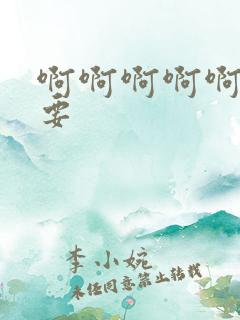 啊啊啊啊啊
要
李小婉
未经同意禁止转载